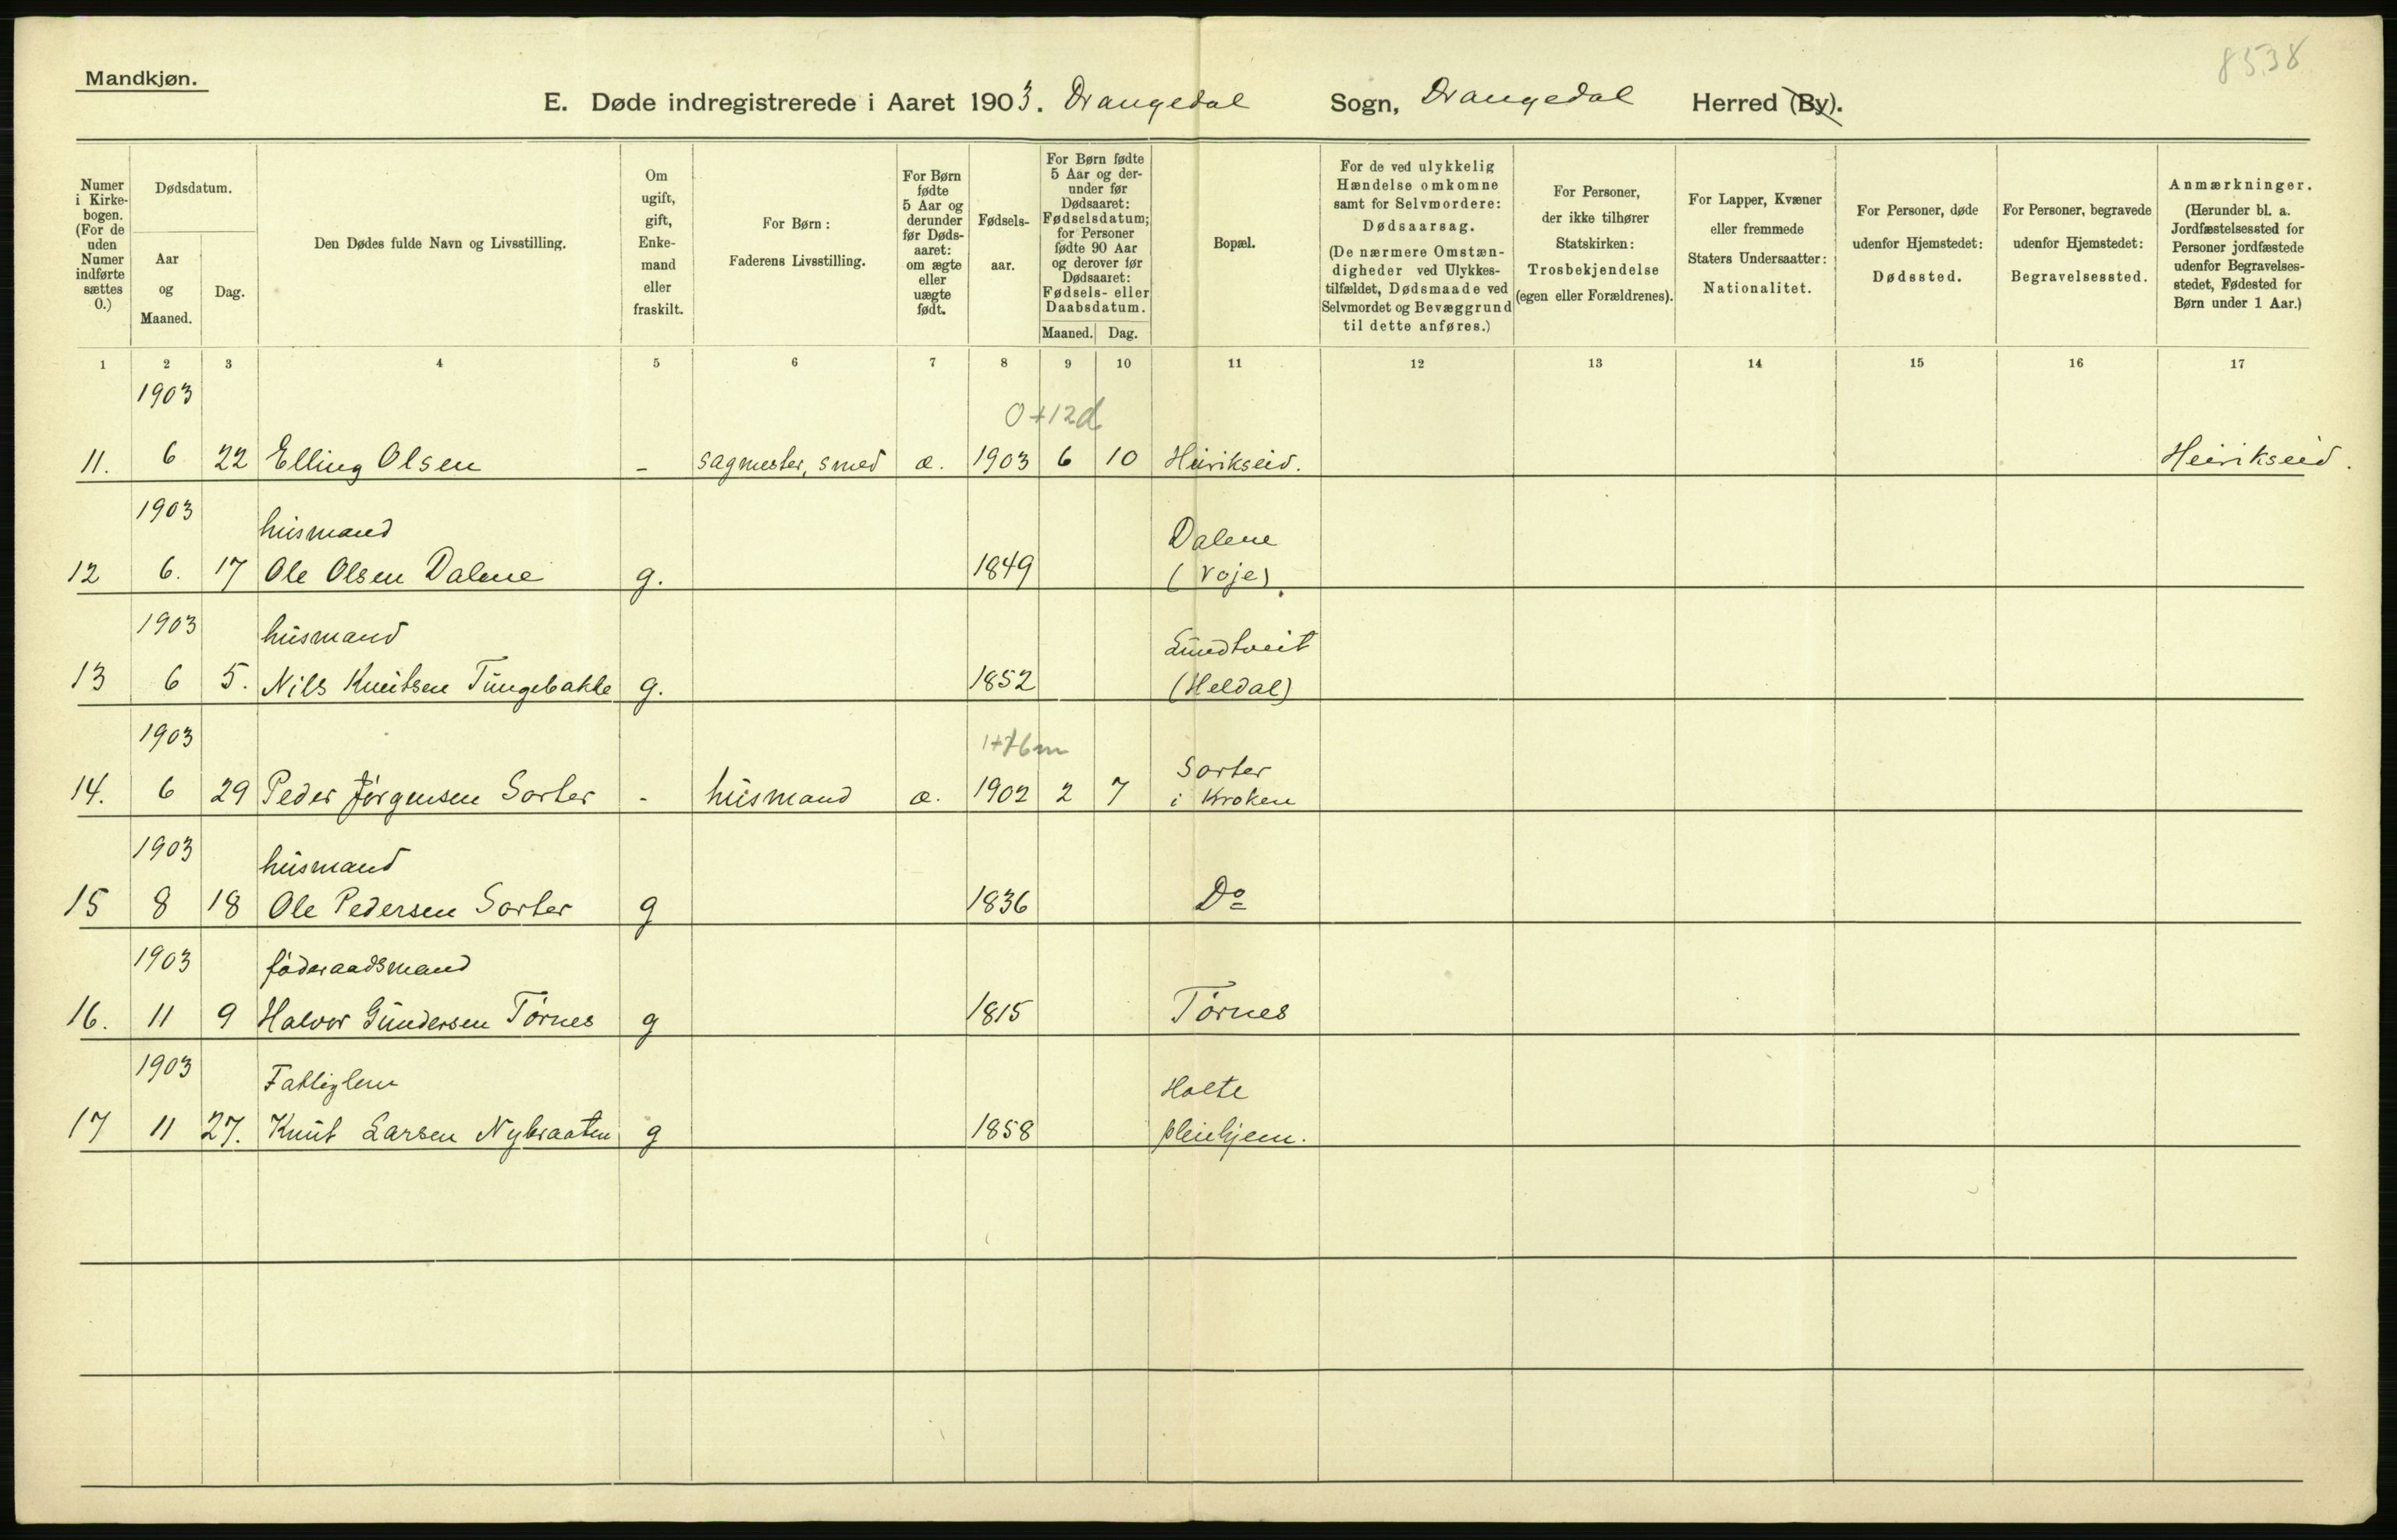 8538
Mandkjøn.
E. Døde indregistrerede i Aaret 1903. Drangedal Sogn, Drangedal Herred (By).
Numer i Kirke-bogen. (For de uden Numer indførte sættes 0.)
Dødsdatum.
Aar og Maaned.
Dag.
Den Dødes fulde Navn og Livsstilling.
Om ugift, gift, Enke-mand eller fraskilt.
For Børn: Faderens Livsstilling.
For Børn fødte 5 Aar og derunder før Døds-aaret: om ægte eller uægte født.
Fødsels-aar.
For Børn fødte 5 Aar og der-under før Dødsaaret: Fødselsdatum; for Personer fødte 90 Aar og derover før Dødsaaret: Fødsels- eller Daabsdatum.
Maaned. Dag.
Bopæl.
For de ved ulykkelig Hændelse omkomne samt for Selvmordere: Dødsaarsag. (De nærmere Omstæn-digheder ved Ulykkes-tilfældet, Dødsmaade ved Selvmordet og Bevæggrund til dette anføres.)
For Personer, der ikke tilhører Statskirken: Trosbekjendelse (egen eller Forældrenes).
For Lapper, Kvæner eller fremmede Staters Undersaatter: Nationalitet.
For Personer, døde udenfor Hjemstedet: Dødssted.
For Personer, begravede udenfor Hjemstedet: Begravelsessted.
Anmærkninger. (Herunder bl. a. Jordfæstelsessted for Personer jordfæstede udenfor Begravelses-stedet, Fødested for Børn under 1 Aar.)
1 2 3 4 5 6 7 8 9 10 11 12 13 14 15 16 17
1903
0+12d
11. 6 22 Elling Olsen - sagmester, smed æ. 1903 6 10 Heirikseid. Heirikseid.
1903 husmand Dalene
12 6. 17 Ole Olsen Dalene g. 1849 (Voje).
1903 husmand Lundtveit
13 6 5. Nils Knutsen Tungebakke g. 1852 (Heldal)
1903 Sorter
14. 6 29 Peder Jørgensen Sorter - husmand æ. 1902 2 7 i Kroken
1903 husmand
15 8 18 Ole Pedersen Sorter g 1836 Do
1903 føderaadsmand
16. 11 9 Halvor Gundersen Tørnes g 1815 Tørnes
1903 Fattiglem Holte
17 11 27. Knut Larsen Nybraaten g 1858 pleiehjem.